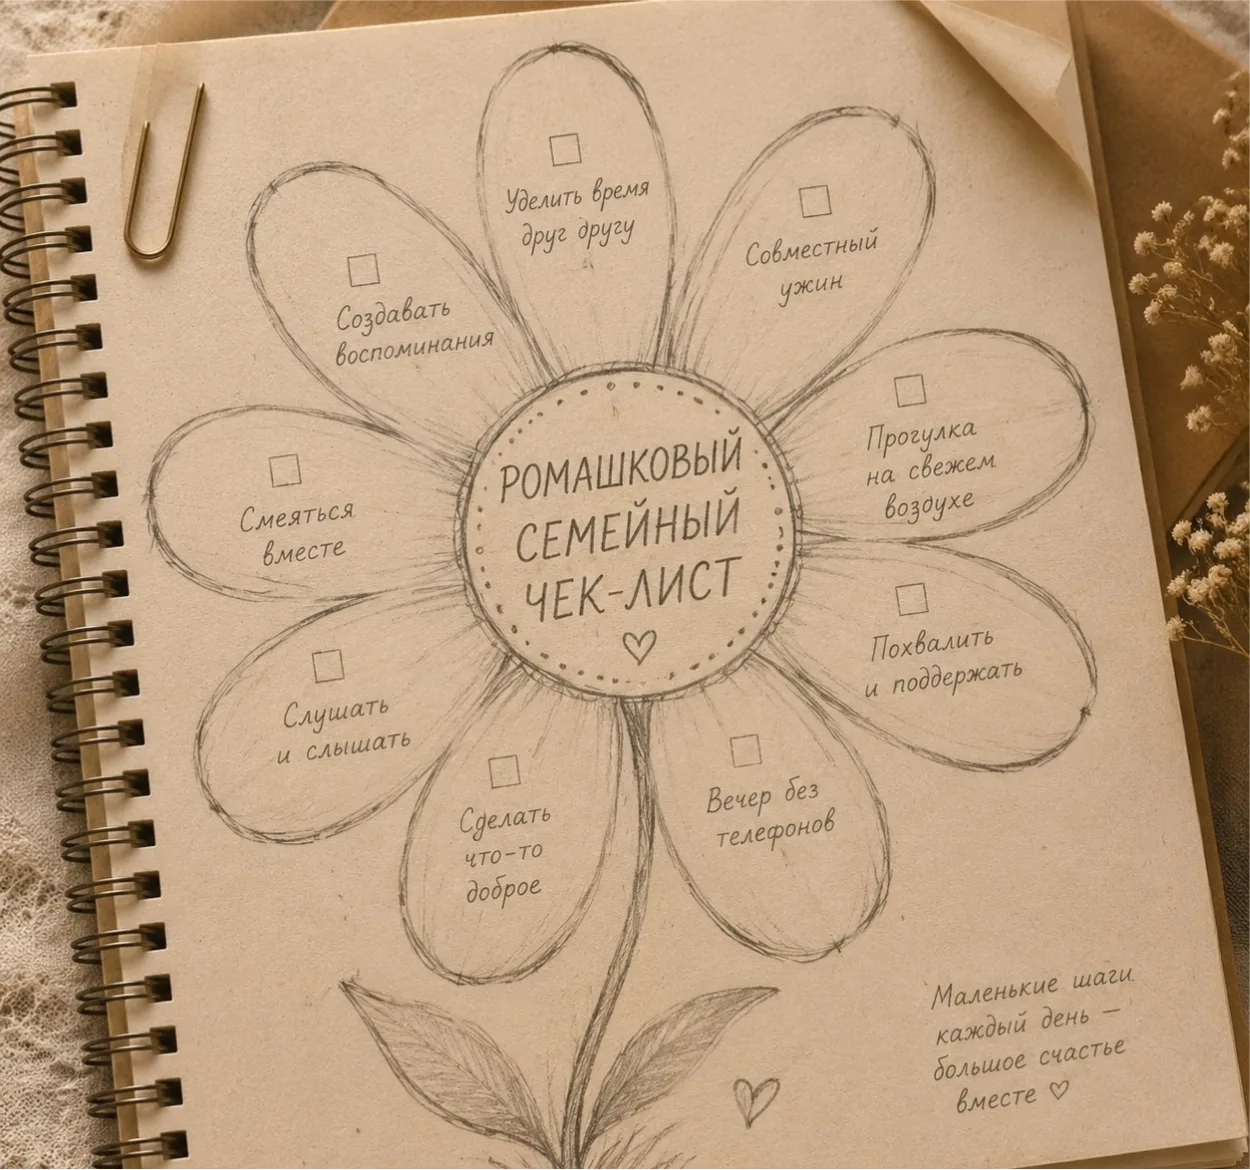 РОМАШКОВЫЙ
СЕМЕЙНЫЙ
ЧЕК-ЛИСТ
Уделить время
друг другу
Совместный
ужин
Прогулка
на свежем
воздухе
Похвалить
и поддержать
Вечер без
телефонов
Сделать
что-то
доброе
Слушать
и слышать
Смеяться
вместе
Создавать
воспоминания
Маленькие шаги
каждый день —
большое счастье
вместе ♡